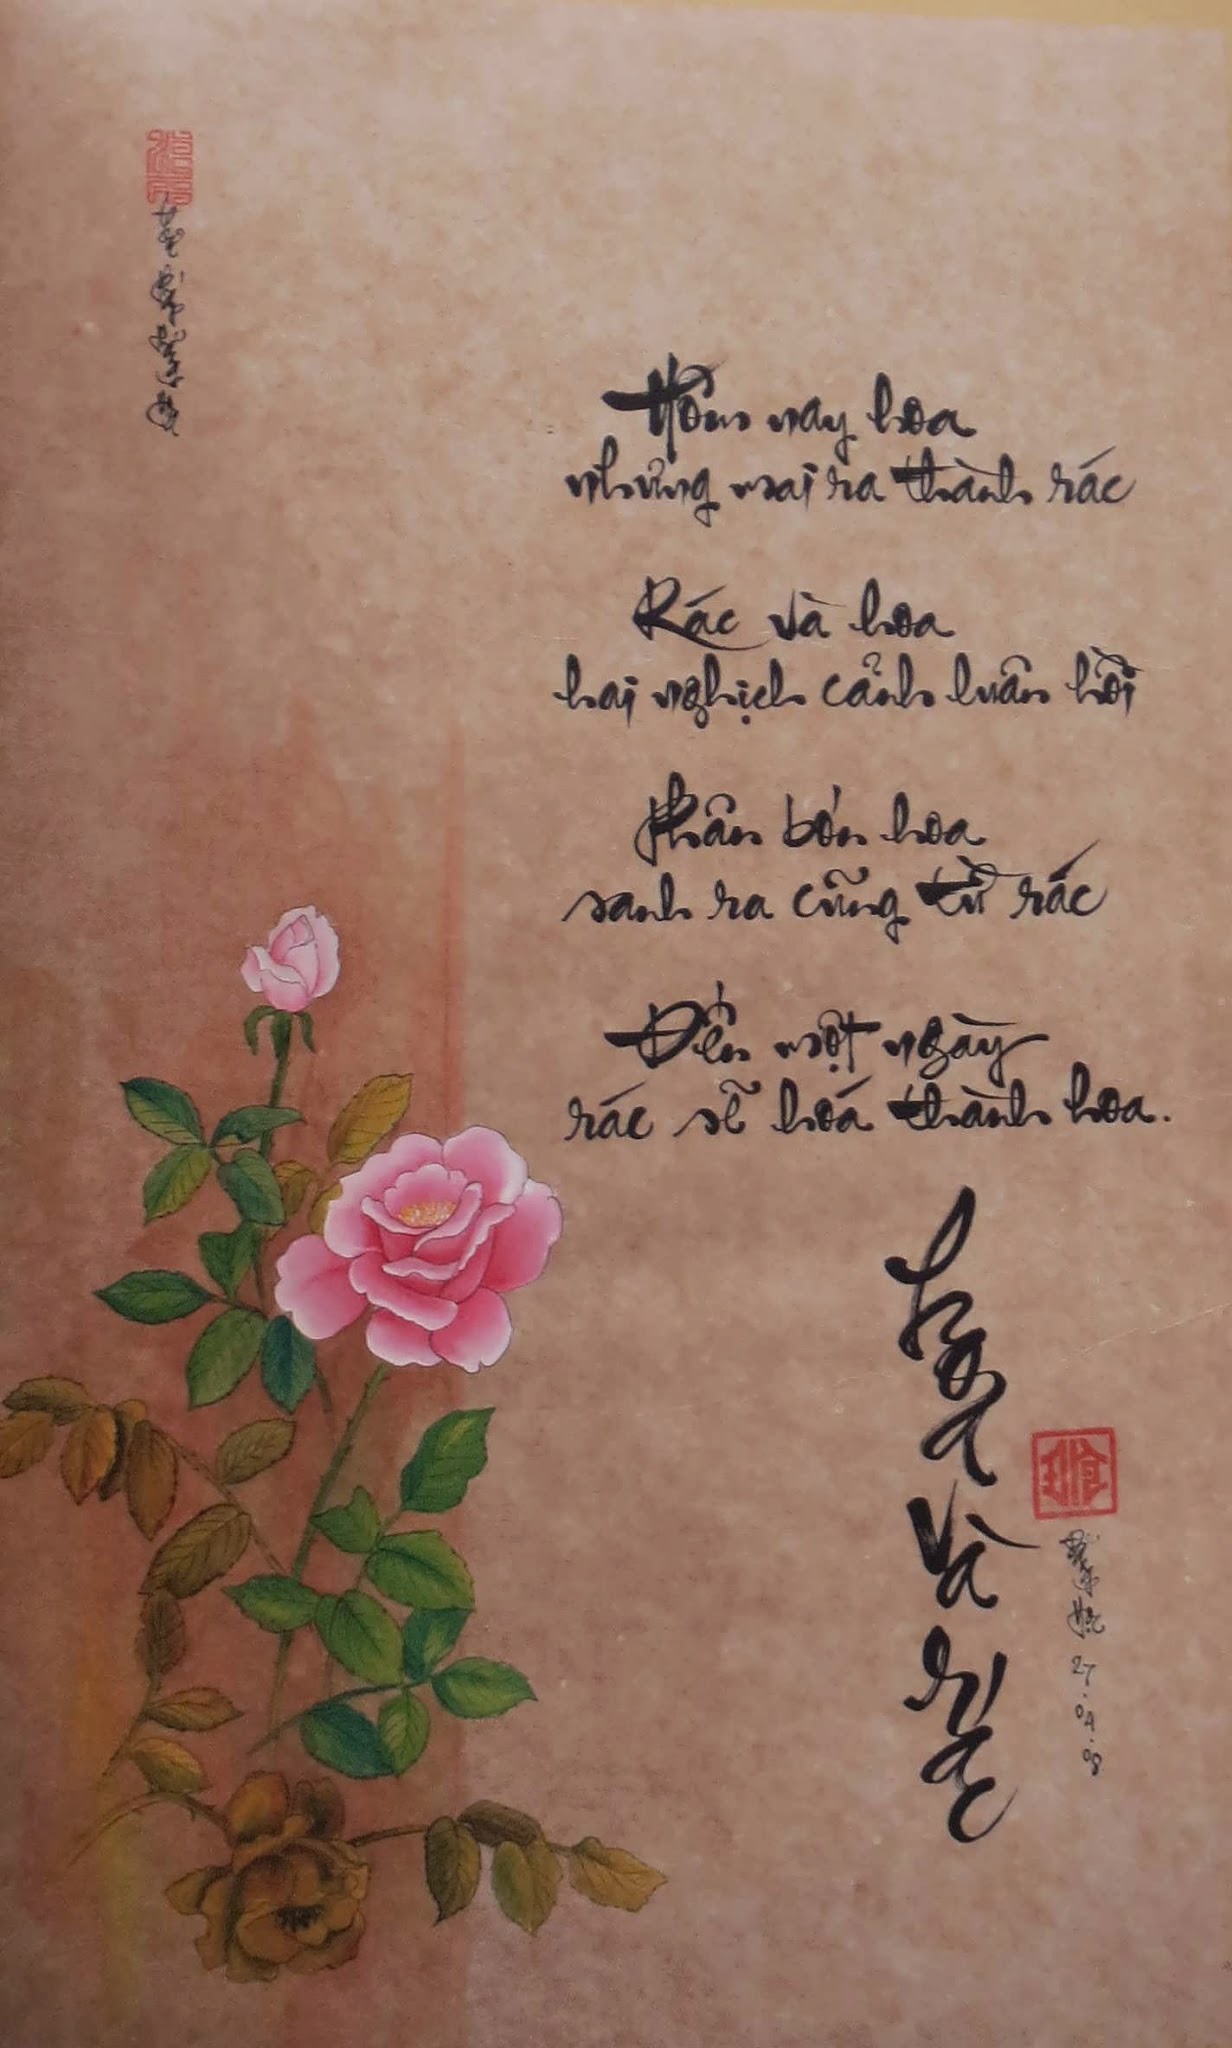 Hôm nay hoa
nhưng mai ra thành rác
Rác và hoa
hai nghịch cảnh luân hồi
Phân bón hoa
sanh ra cũng từ rác
Đến một ngày
rác sẽ hoá thành hoa.
hoa
và
rác
27.04.08